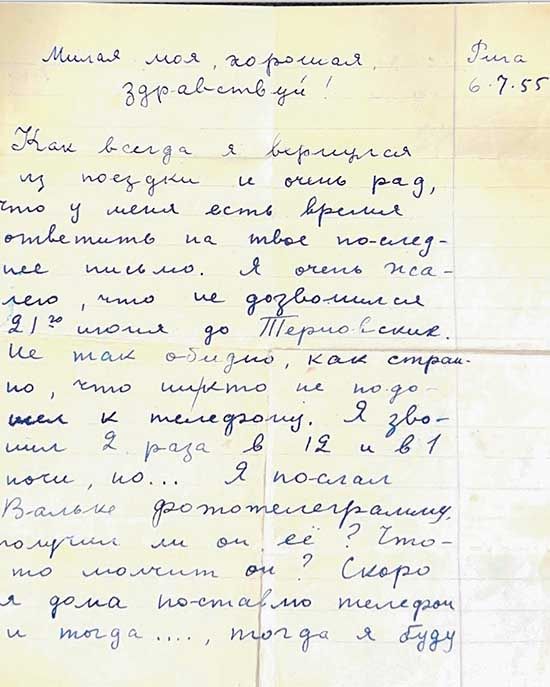 Милая моя, хорошая, Рига
здравствуй! 6.7.55
Как всегда я вернулся
из поездки и очень рад,
что у меня есть время
ответить на твое послед-
нее письмо. Я очень жа-
лею, что не дозвонился
21го июня до Терновских.
Не так обидно, как стран-
но, что никто не подо-
шел к телефону. Я зво-
нил 2 раза в 12 и в 1
ночи, но... Я послал
Вальке фототелеграмму,
получил ли он её? Что-
то молчит он? Скоро
я дома поставлю телефон
и тогда...., тогда я буду